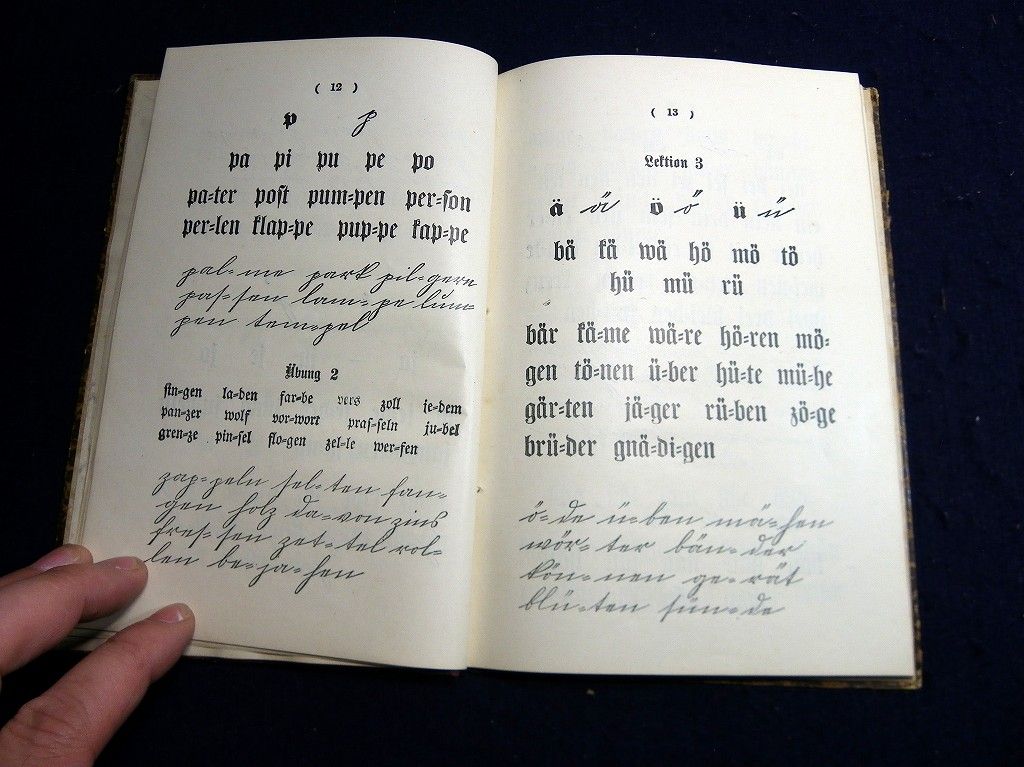 ( 12 )
p p
pa pi pu pe po
pa=ter post pum=pen per=son
per=len klap=pe pup=pe kap=pe
pal=me park pil=gern
pas=sen lam=pe lum=
pen tem=pel
Übung 2
sin=gen la=den far=be vers zoll je=dem
pan=zer wolf vor=wort pras=seln ju=bel
gren=ze pin=sel flo=gen zel=le wer=fen
zap=peln sel=ten fan=
gen holz da=von zins
fres=sen zet=tel rol=
len be=ja=hen
( 13 )
Lektion 3
ä ä ö ö ü ü
bä kä wä hö mö tö
hü mü rü
bär kä=me wä=re hö=ren mö=
gen tö=nen ü=ber hü=te mü=he
gär=ten jä=ger rü=ben zö=ge
brü=der gnä=di=gen
ö=de ü=ben mä=hen
wör=ter bän=der
kön=nen ge=rät
blü=ten sün=de